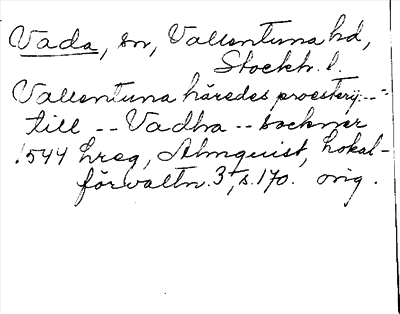 Vada, sn, Vallentuna hd,
Stockh. l.
Vallentuna häredes proesterij--=
till -- Vadha -- sockner
1544 hreg, Almquist, Lokal-
förvaltn. 3, s. 170. orig.